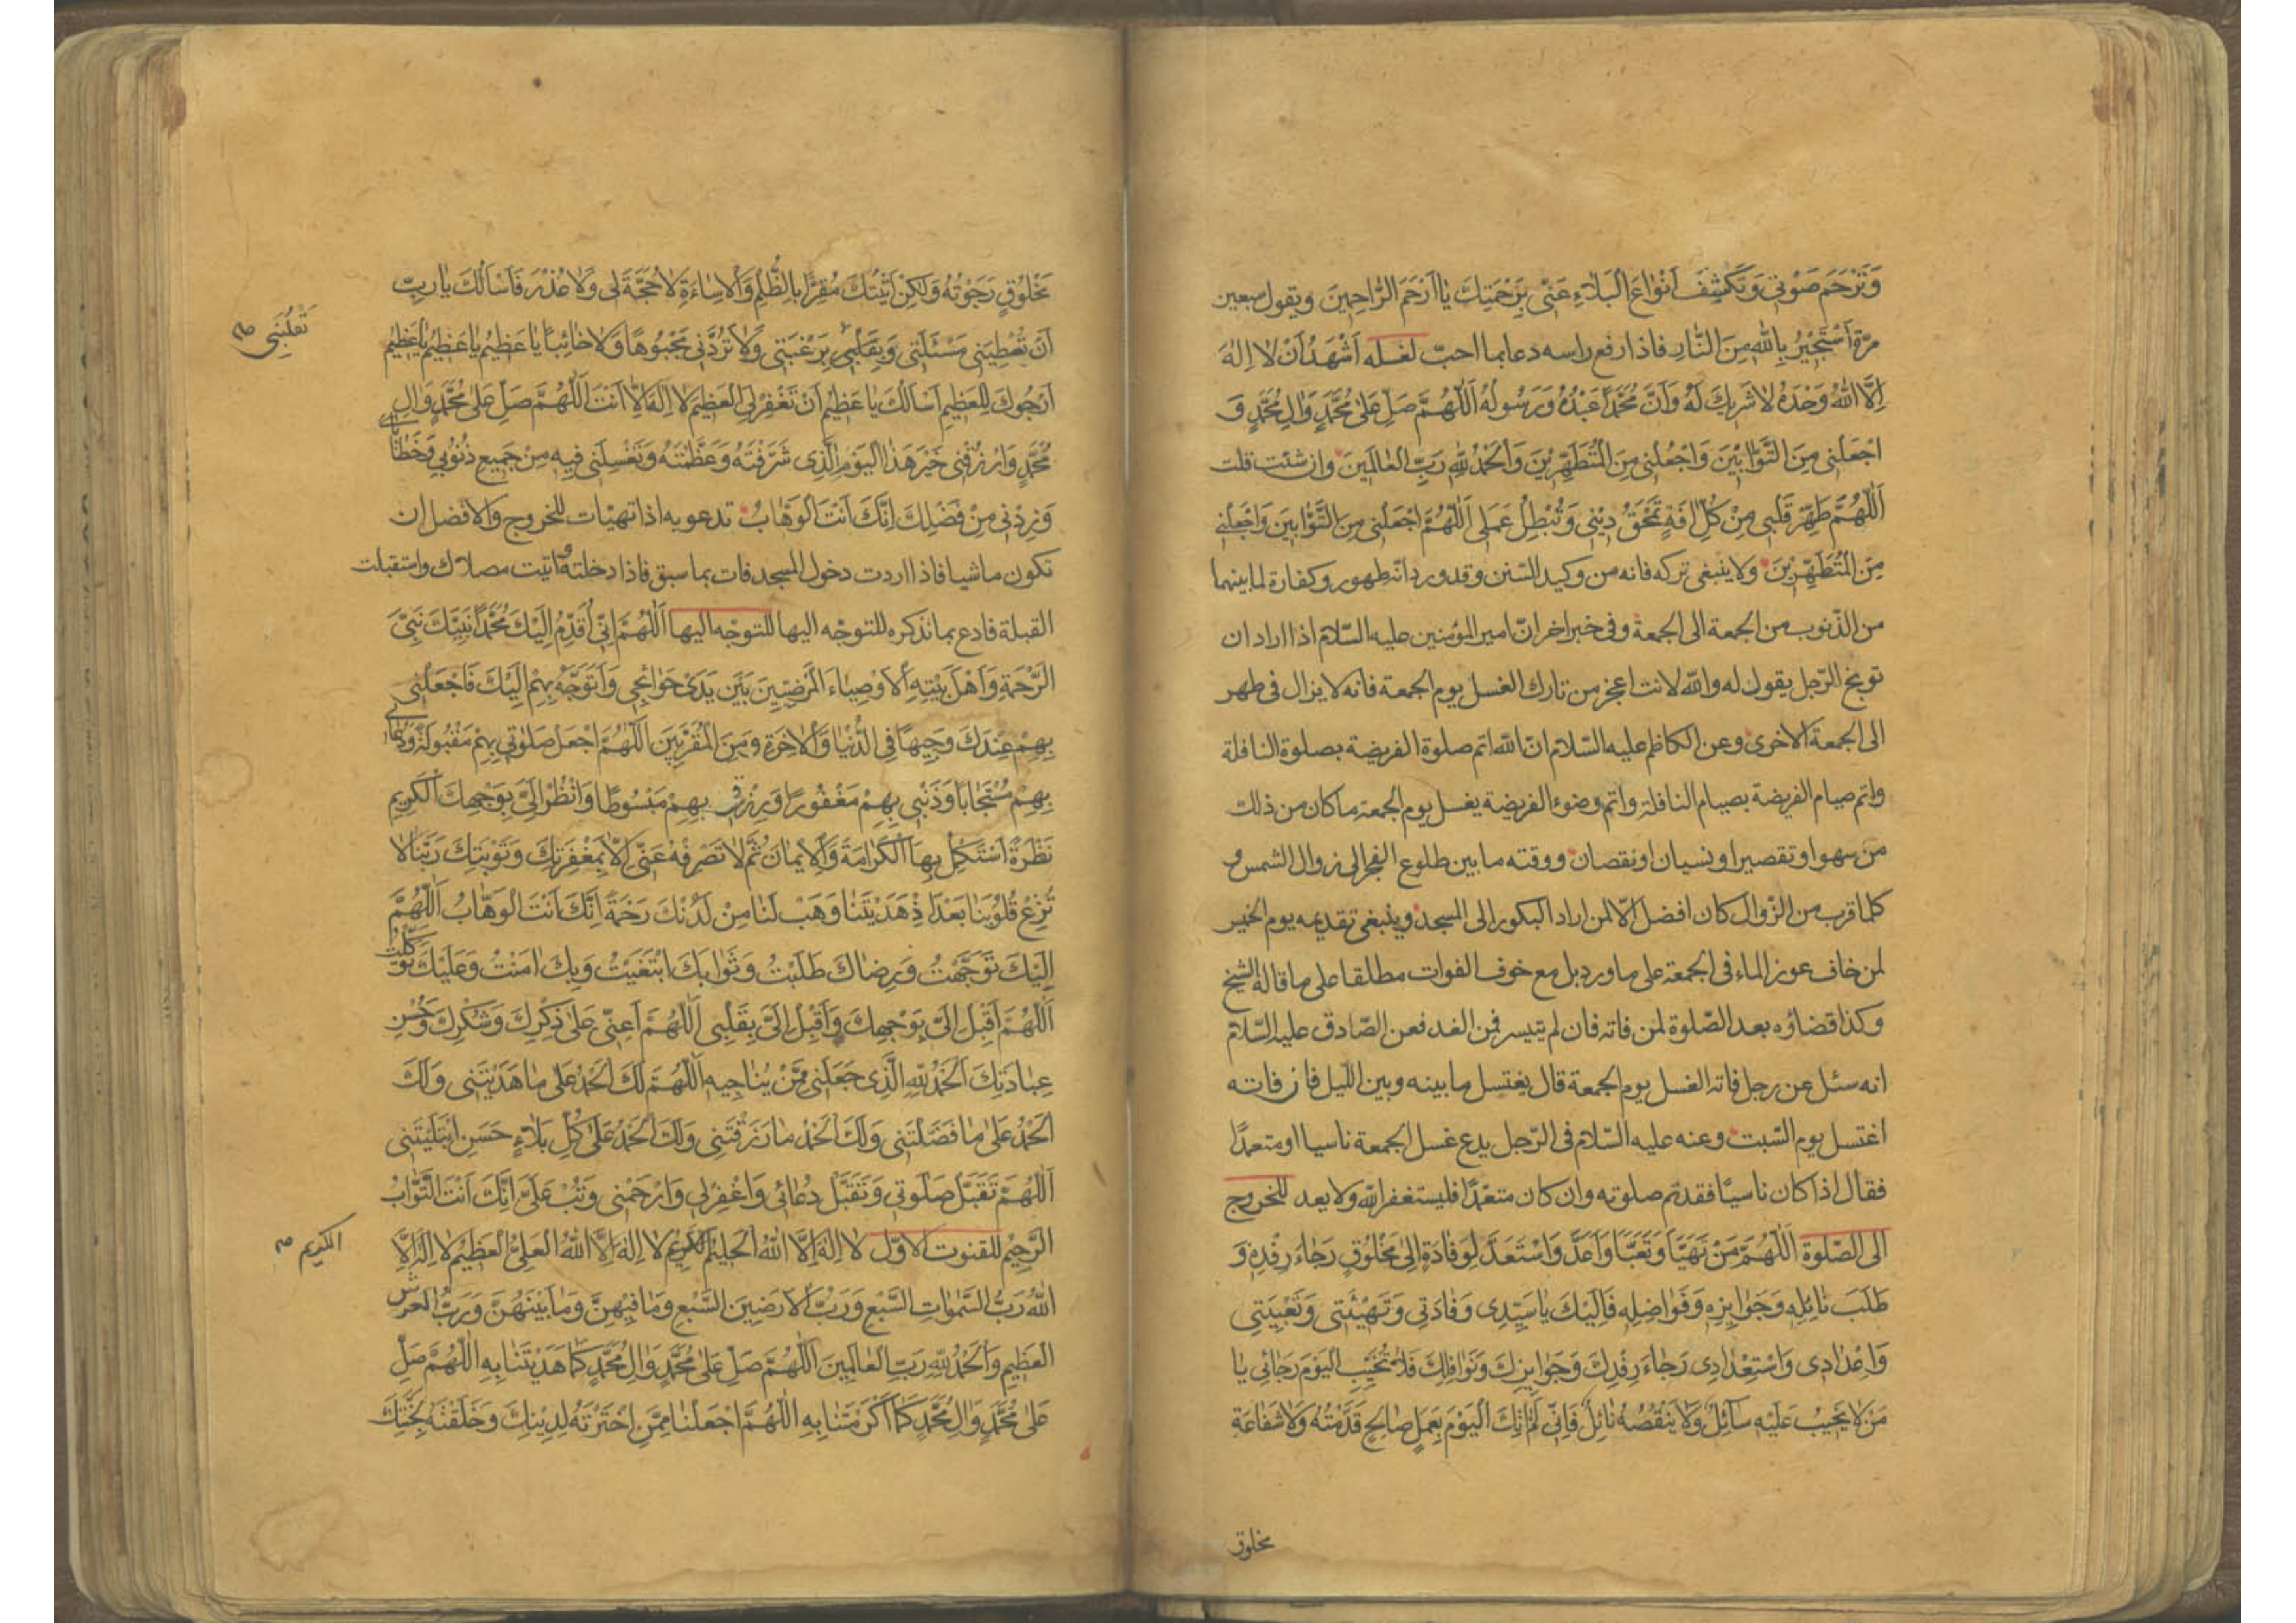 وَتَرْحَمَ صَوْتِي وَتَكْشِفَ اَنْوَاعَ الْبَلَاءِ عَنّي بِرَحْمَتِكَ يَا اَرْحَمَ الرَّاحِمِينَ ويقول سبعين
مرّة اَسْتَجِيْرُ بِاللهِ مِنَ النَّارِ فاذا رفع راسه دعا بما احبّ لغسله اَشْهَدُ اَنْ لا اِلهَ
اِلَّا اللهُ وَحْدَهُ لا شَرِيكَ لَهُ وَاَنَّ مُحَمَّدًا عَبْدُهُ وَرَسُولُهُ اَللّهُمَّ صَلِّ عَلى مُحَمَّدٍ وَالِ مُحَمَّدٍ وَ
اجْعَلْنِي مِنَ التَّوَّابِيْنَ وَاجْعَلْنِي مِنَ الْمُتَطَهِّرِيْنَ وَالْحَمْدُ لِلّهِ رَبِّ الْعَالَمِينَ وان شئت قلت
اَللّهُمَّ طَهِّرْ قَلْبِي مِنْ كُلِّ افَةٍ تَمْحَقُ دِيْنِي وَتُبْطِلُ عَمَلِي اَللّهُمَّ اجْعَلْنِي مِنَ التَّوَّابِينَ وَاجْعَلْنِي
مِنَ الْمُتَطَهِّرِيْنَ ولا ينبغي تركه فانه من وكيد السّنن وقد ورد انّه طهور وكفارة لما بينهما
من الذّنوب من الجمعة الى الجمعة وفي خبر اخر انّ امير المؤمنين عليه السّلام اذا اراد ان
توبيخ الرّجل يقول له والله لانت اعجز من تارك الغسل يوم الجمعة فانه لا يزال في طهر
الى الجمعة الاخرى وعن الكاظم عليه السّلام انّ الله اتم صلوة الفريضة بصلوة النافلة
واتم صيام الفريضة بصيام النافلة واتم وضوء الفريضة بغسل يوم الجمعة ما كان من ذلك
من سهو او تقصير او نسيان او نقصان ووقته ما بين طلوع الفجر الى زوال الشمس و
كلما قرب من الزّوال كان افضل الّا لمن اراد البكور الى المسجد وينبغي تقديمه يوم الخميس
لمن خاف عوز الماء في الجمعة على ما ورد بل مع خوف الفوات مطلقا على ما قاله الشيخ
وكذا قضاؤه بعد الصّلوة لمن فاته فان لم يتيسر فمن الغد فعن الصّادق عليه السّلام
انه سئل عن رجل فاته الغسل يوم الجمعة قال يغتسل ما بينه وبين الليل فان فاته
اغتسل يوم السّبت وعنه عليه السّلام في الرّجل يدع غسل الجمعة ناسيا او متعمدًا
فقال اذا كان ناسيًا فقد تم صلوته وان كان متعمّدًا فليستغفر الله ولا يعد للخروج
الى الصّلوة اَللّهُمَّ مَنْ تَهَيَّاَ وَتَعَبَّاَ وَاَعَدَّ وَاسْتَعَدَّ لِوَفَادَةٍ اِلى مَخْلُوْقٍ رَجَاءَ رِفْدِهِ وَ
طَلَبَ نَائِلِهِ وَجَوَايِزِهِ وَفَوَاضِلِهِ فَاِلَيْكَ يَا سَيِّدِي وَفَادَتِي وَتَهْيِئَتِي وَتَعْبِيَتِي
وَاِعْدَادِي وَاسْتِعْدَادِي رَجَاءَ رِفْدِكَ وَجَوَايِزِكَ وَنَوَافِلِكَ فَلَا تُخَيِّبِ الْيَوْمَ رَجَائِي يَا
مَنْ لَا يَخِيْبُ عَلَيْهِ سَآئِلٌ وَلَا يَنْقُصُهُ نَائِلٌ فَاِنِّي لَمْ اتِكَ الْيَوْمَ بِعَمَلٍ صَالِحٍ قَدَّمْتُهُ وَلَا شَفَاعَةِ
مخلوق
مَخْلُوْقٍ رَجَوْتُهُ وَلكِنْ اَتَيْتُكَ مُقِرًّا بِالظُّلْمِ وَالْاِسَاءَةِ لَا حُجَّةَ لِي وَلَا عُذْرَ فَاَسْاَلُكَ يَا رَبِّ
اَنْ تُعْطِيَنِي مَسْئَلَتِي وَتَقْلِبَنِي بِرَغْبَتِي وَلَا تَرُدَّنِي مَجْبُوْهًا وَلَا خَائِبًا يَا عَظِيْمُ يَا عَظِيْمُ يَا عَظِيْمُ
تَقْلِبَنِي صح
اَرْجُوكَ لِلْعَظِيمِ اَسْاَلُكَ يَا عَظِيْمُ اَنْ تَغْفِرَ لِيَ الْعَظِيْمَ لا اِلهَ اِلَّا اَنْتَ اَللّهُمَّ صَلِّ عَلى مُحَمَّدٍ وَالِ
مُحَمَّدٍ وَارْزُقْنِي خَيْرَ هذَا الْيَوْمِ الَّذِي شَرَّفْتَهُ وَعَظَّمْتَهُ وَتَغْسِلَنِي فِيهِ مِنْ جَمِيعِ ذُنُوبِي وَخَطَايَايَ
وَزِدْنِي مِنْ فَضْلِكَ اِنَّكَ اَنْتَ الْوَهَّابُ تدعو به اذا تهيّات للخروج والافضل ان
تكون ماشيا فاذا اردت دخول المسجد فات بما سبق فاذا دخلته واتيت مصلاك واستقبلت
القبلة فادع بما نذكره للتوجّه اليها للتوجّه اليها اَللّهُمَّ اِنِّي اُقَدِّمُ اِلَيْكَ مُحَمَّدًا نَبِيَّكَ نَبِيَّ
الرَّحْمَةِ وَاَهْلَ بَيْتِهِ الْاَوْصِيَاءَ الْمَرْضِيِّينَ بَيْنَ يَدَيْ حَوَائِجِي وَاَتَوَجَّهُ بِهِمْ اِلَيْكَ فَاجْعَلْنِي
بِهِمْ عِنْدَكَ وَجِيهًا فِي الدُّنْيَا وَالْاخِرَةِ وَمِنَ الْمُقَرَّبِيْنَ اَللّهُمَّ اجْعَلْ صَلوتِي بِهِمْ مَقْبُولَةً وَدُعَائِي
بِهِمْ مُسْتَجَابًا وَذَنْبِي بِهِمْ مَغْفُورًا وَرِزْقِي بِهِمْ مَبْسُوطًا وَانْظُرْ اِلَيَّ بِوَجْهِكَ الْكَرِيمِ
نَظْرَةً اَسْتَكْمِلُ بِهَا الْكَرَامَةَ وَالْاِيمَانَ ثُمَّ لا تَصْرِفْهُ عَنِّي اِلَّا بِمَغْفِرَتِكَ وَتَوْبَتِكَ رَبَّنَا لا
تُزِغْ قُلُوْبَنَا بَعْدَ اِذْ هَدَيْتَنَا وَهَبْ لَنَا مِنْ لَدُنْكَ رَحْمَةً اِنَّكَ اَنْتَ الْوَهَّابُ اَللّهُمَّ
اِلَيْكَ تَوَجَّهْتُ وَرِضَاكَ طَلَبْتُ وَثَوَابَكَ ابْتَغَيْتُ وَبِكَ امَنْتُ وَعَلَيْكَ تَوَكَّلْتُ
اَللّهُمَّ اَقْبِلْ اِلَيَّ بِوَجْهِكَ وَاَقْبِلْ اِلَيْكَ بِقَلْبِي اَللّهُمَّ اَعِنِّي عَلى ذِكْرِكَ وَشُكْرِكَ وَحُسْنِ
عِبَادَتِكَ اَلْحَمْدُ لِلّهِ الَّذِي جَعَلَنِي مِمَّنْ يُنَاجِيهِ اَللّهُمَّ لَكَ الْحَمْدُ عَلى مَا هَدَيْتَنِي وَلَكَ
الْحَمْدُ عَلى مَا فَضَّلْتَنِي وَلَكَ الْحَمْدُ مَا رَزَقْتَنِي وَلَكَ الْحَمْدُ عَلى كُلِّ بَلَاءٍ حَسَنٍ ابْتَلَيْتَنِي
اَللّهُمَّ تَقَبَّلْ صَلوتِي وَتَقَبَّلْ دُعَائِي وَاغْفِرْ لِي وَارْحَمْنِي وَتُبْ عَلَيَّ اِنَّكَ اَنْتَ التَّوَّابُ
الرَّحِيْمُ للقنوت الاوّل لا اِلهَ اِلَّا اللهُ الْحَلِيْمُ الْكَرِيمُ لا اِلهَ اِلَّا اللهُ الْعَلِيُّ الْعَظِيْمُ لا اِلهَ اِلَّا
الكريم صح
اللهُ رَبُّ السَّموَاتِ السَّبْعِ وَرَبُّ الْاَرَضِيْنَ السَّبْعِ وَمَا فِيْهِنَّ وَمَا بَيْنَهُنَّ وَرَبُّ الْعَرْشِ
الْعَظِيمِ وَالْحَمْدُ لِلّهِ رَبِّ الْعَالَمِيْنَ اَللّهُمَّ صَلِّ عَلى مُحَمَّدٍ وَالِ مُحَمَّدٍ كَمَا هَدَيْتَنَا بِهِ اَللّهُمَّ صَلِّ
عَلى مُحَمَّدٍ وَالِ مُحَمَّدٍ كَمَا اَكْرَمْتَنَا بِهِ اَللّهُمَّ اجْعَلْنَا مِمَّنِ اخْتَرْتَهُ لِدِيْنِكَ وَخَلَقْتَهُ لِجَنَّتِكَ